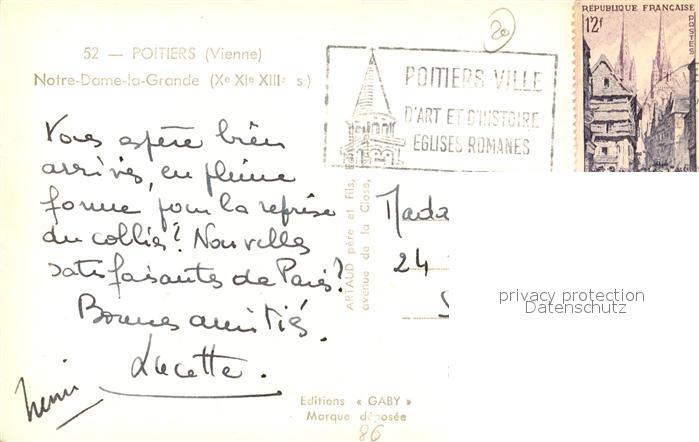 20
RÉPUBLIQUE FRANÇAISE
12F
POSTES
52 — POITIERS (Vienne)
Notre-Dame-la-Grande (Xe XIe XIIIe s.)
POITIERS VILLE
D'ART ET D'HISTOIRE
EGLISES ROMANES
Vous espère bien
arrivés, en pleine
forme pour la reprise
du collier? Nouvelles
satisfaisantes de Paris?
Bonnes amitiés.
Lucette.
Henri
ARTAUD père et Fils,
avenue de la Close,
Mada
24
privacy protection
Datenschutz
Editions « GABY »
Marque déposée
86